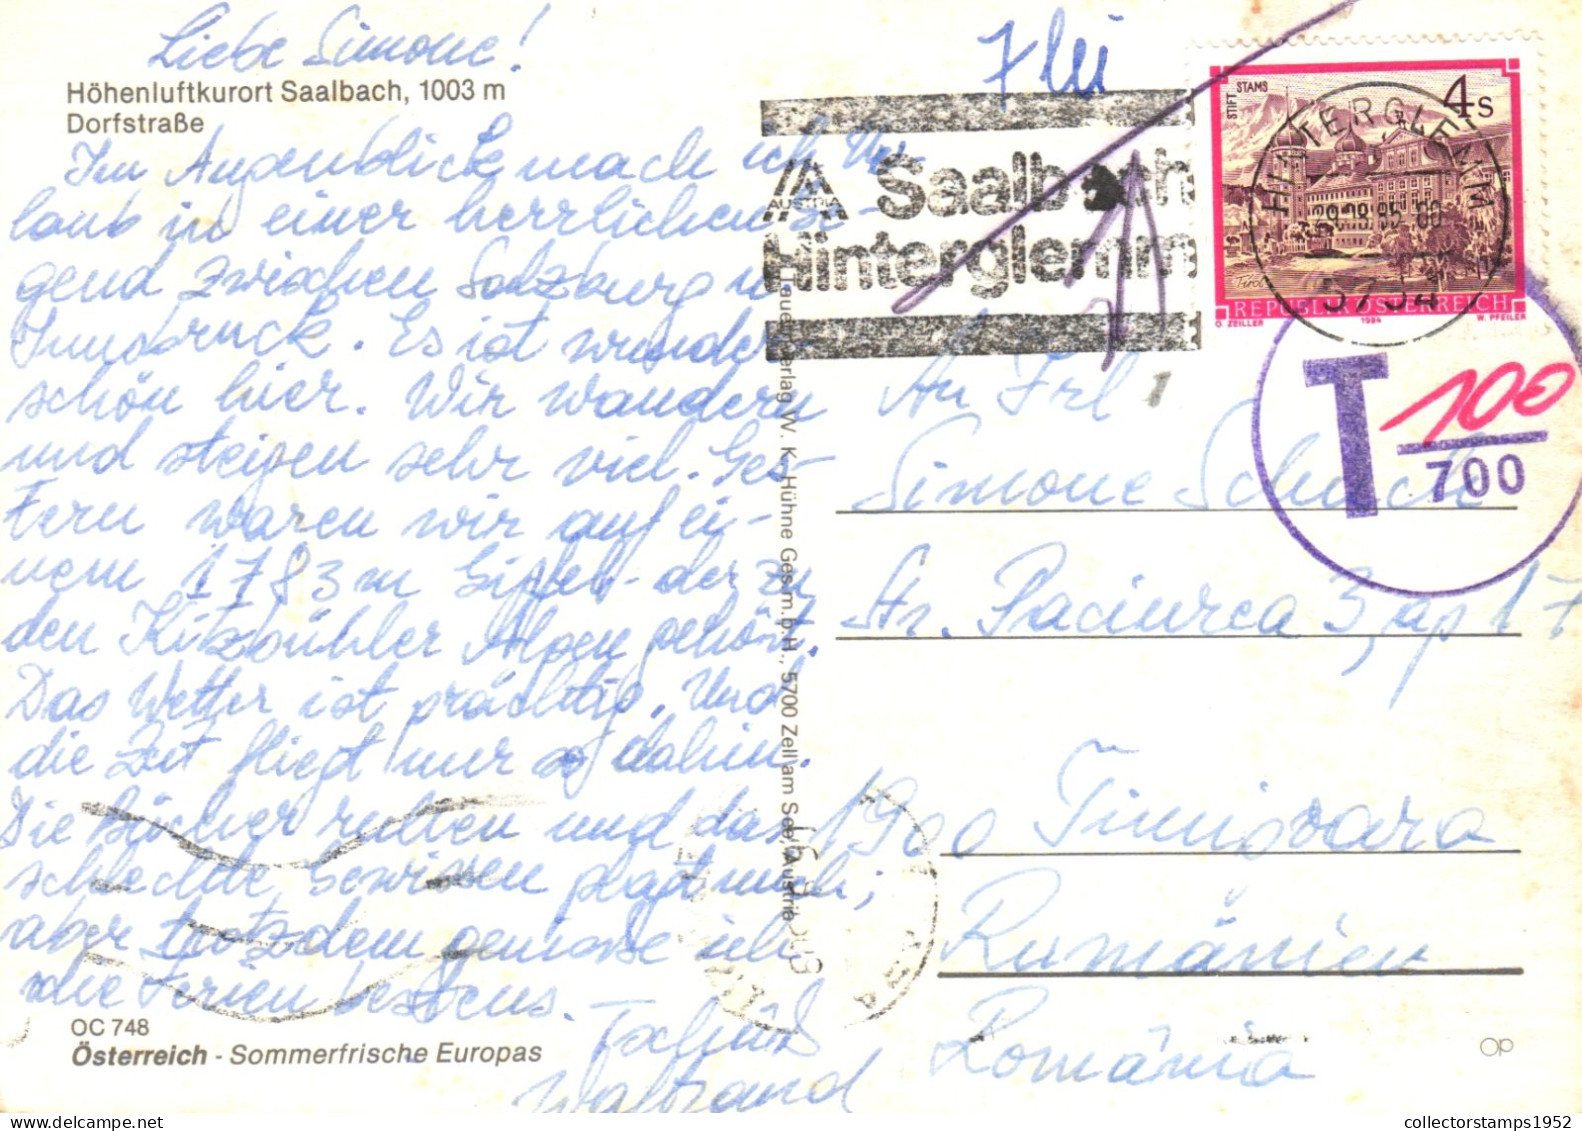 Liebe Simone!
Höhenluftkurort Saalbach, 1003 m
Dorfstraße
Im Augenblick mach ich Ur-
laub in einer herrlichen Ge-
gend zwischen Salzburg u.
Innsbruck. Es ist wunder-
schön hier. Wir wandern
und steigen sehr viel. Ges-
tern waren wir auf ei-
nem 1783 m Gipfel - der zu
den Kitzbühler Alpen gehört.
Das Wetter ist prächtig. Und
die Zeit fliegt nur so dahin.
Die Bücher ruhen und das
schlechte Gewissen plagt mich;
aber trotzdem genieße ich
die Ferien bestens. -
Waltraud
OC 748
Österreich - Sommerfrische Europas
Verlag W. K. Hühne Ges.m.b.H., 5700 Zell am See/Austria
7 lei
AUSTRIA
Saalbach
Hinterglemm
STIFT STAMS
4 S
REPUBLIK ÖSTERREICH
O. ZEILLER 1984 W. PFEILER
HINTERGLEMM
5754
T 100
700
1
An Frl
Simone Schuch
Str. Paciurea 3, ap 17
1900 Timișoara
Rumänien
România
op
collectorstamps1952